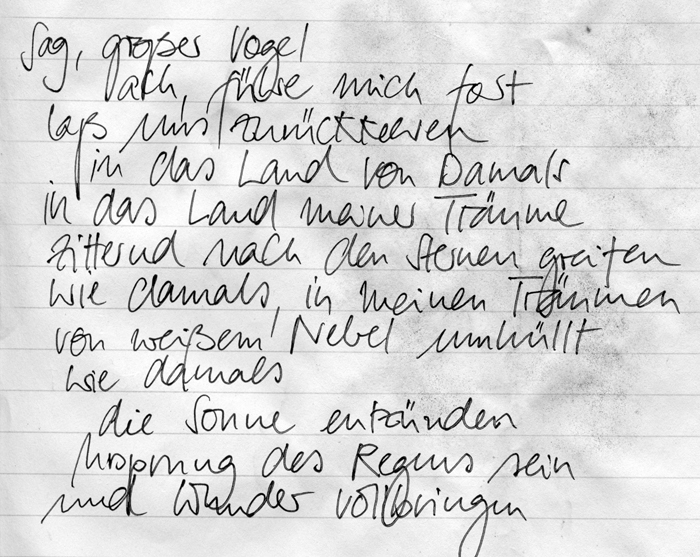 Sag, großer Vogel
ach, führe mich fort
laß uns zurückkehren
in das Land von Damals
in das Land meiner Träume
zitternd nach den Sternen greifen
wie damals, in meinen Träumen
von weißem Nebel umhüllt
wie damals
die Sonne entzünden
Ursprung des Regens sein
und Wunder vollbringen